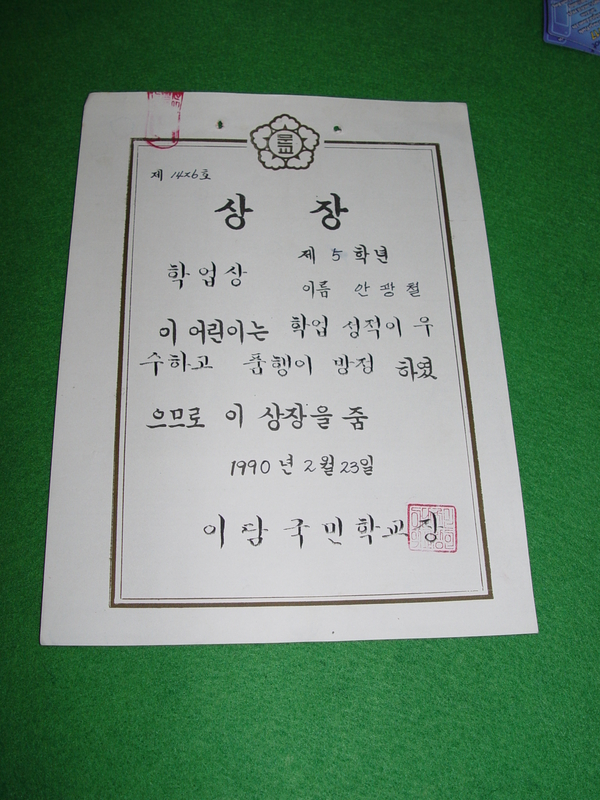 국민교
제 14×6호
상 장
제 5 학년
학업상
이름 안광철
이 어린이는 학업 성적이 우
수하고 품행이 방정 하였
으므로 이 상장을 줌
1990년 2월 23일
이담국민학교장